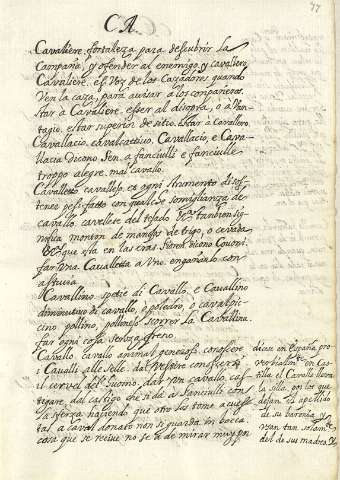 77
CA.
Cavaliere. fortaleza para descubrir la
Campaña, y ofender al enemigo, y cavaliero.
Cavaliere, es voz de los Cazadores quando
ven la caza, para avisar a los compañeros.
star à Cavaliere. esser al disopra, ò à Van-
tagio. estar superior de sitio. estar à Cavallero
Cavallacio, Cavallacio, e Cava-
llucio dicono Sen. a fanciulli e fanciulle
troppo alegre. mal cavallo.
Cavalletto cavalleso. es ogni strumento di sos-
tener pesi fatto con qualche somiglianza di
cavallo. cavalete del tejado &c. tambien sig-
nifica monton de manojos de trigo, o cevada
&c. que està en las eras Fioren. dicono Covoni.
far una Cavalletta à uno. engañarlo con
astucia.
Cavallino spetie di Cavallo. e Cavallino
diminutivo di cavallo, o poledro, o cavalpic-
cino pollino, scorrer la Cavallina.
far ogni cosa senza freno.
Cavallo. cavallo animal generoso. conoscere
i Cavalli alle selle. dal Vestire conoscersi
il cervel del huomo. dar un cavallo. cas-
tegare. dal castigo che si dà a fanciulli con
la sferza haciendo que otro los tome a cuestas
tal. a caval donato non si guarda in bocca.
cosa que se recive no se à de mirar muy pn
dicese en España pro-
verbialmte. en Cas-
tilla el Cavallo lleva
la silla, en los que
dejan el apellido
de su baronia, y
usan tan solamte.
del de su madre.